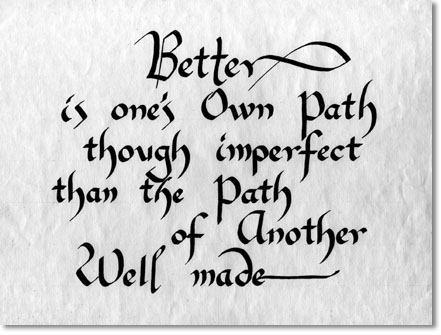 Better
is one's Own Path
though imperfect
than the Path
of Another
Well made